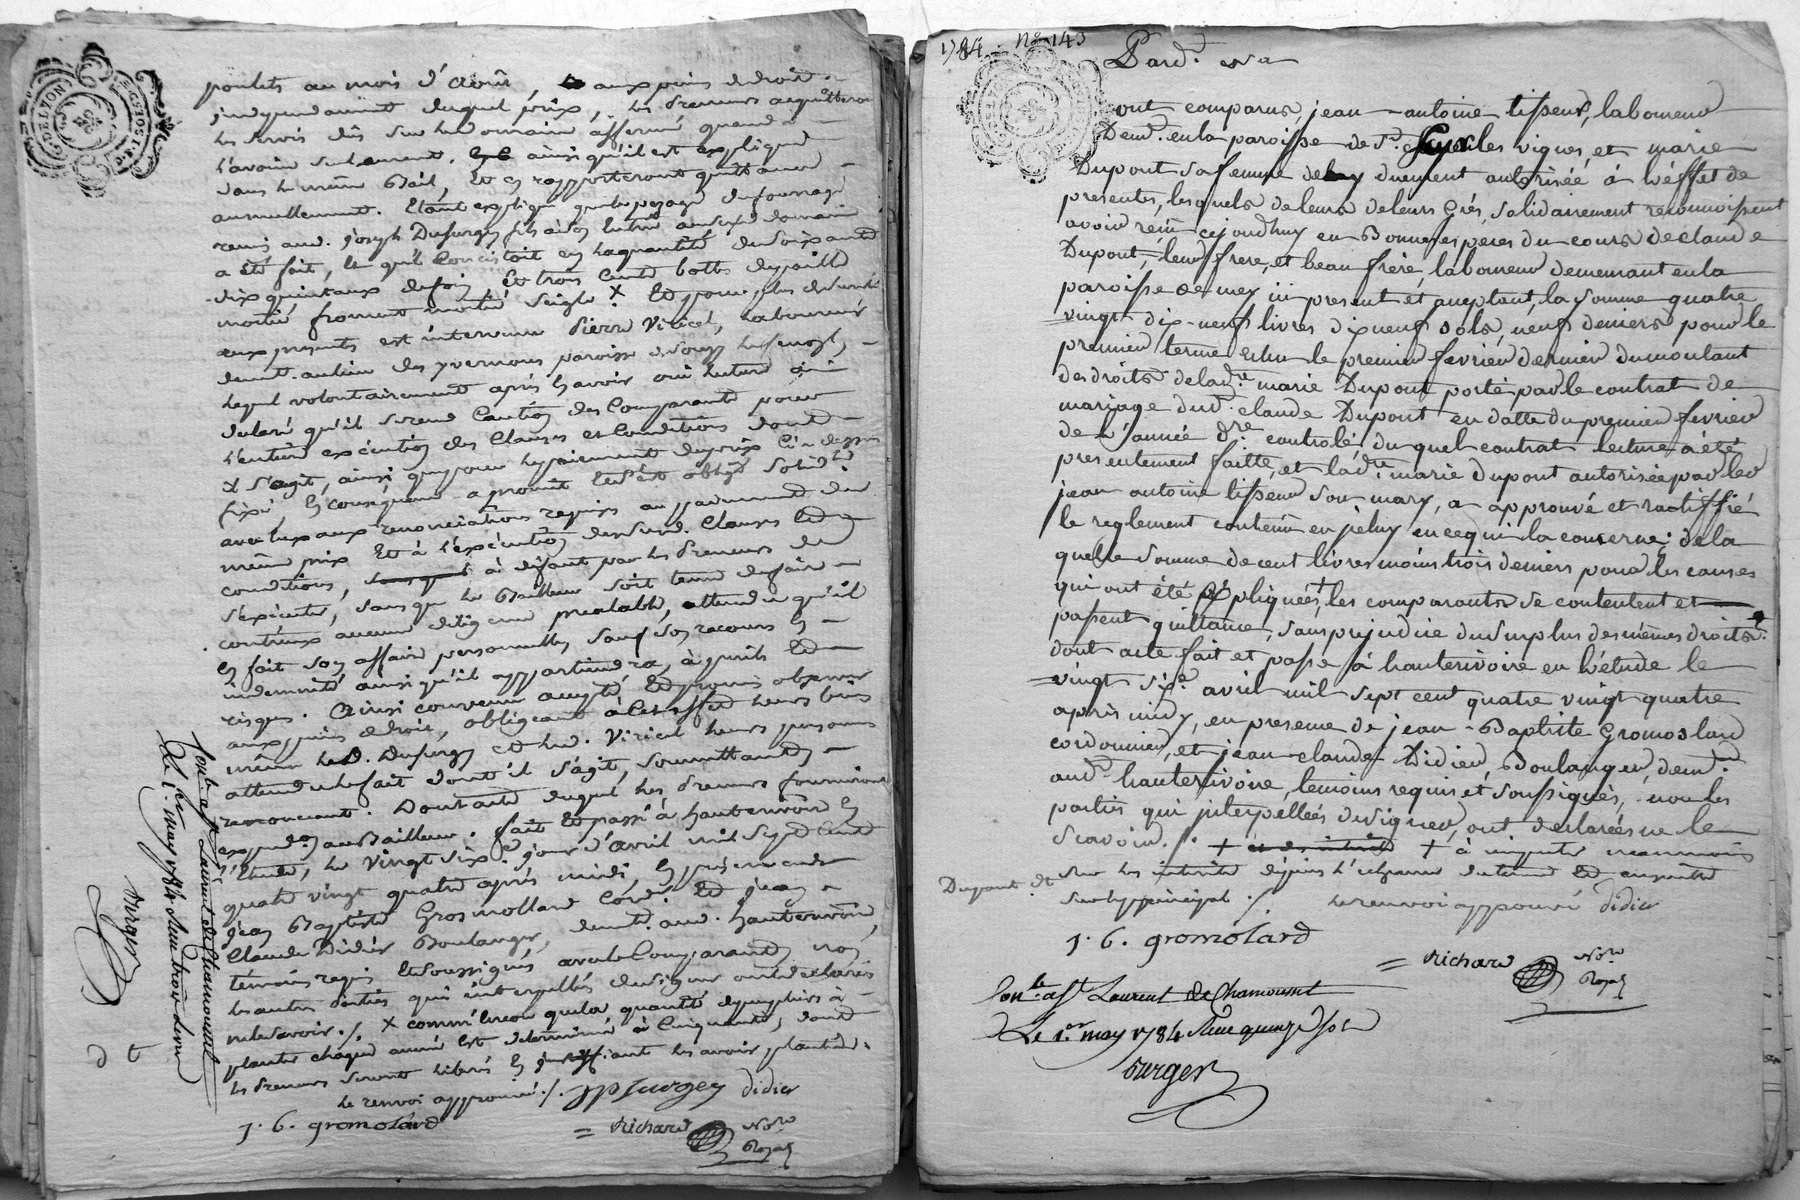 poulets au mois d'aout, aux peines de droit
independamment duquel prix, les preneurs acquitteront
les servis dûs sur le domaine affermé quand à
l'avoine seulement, ainsi qu'il est expliqué
dans le même Bail, Et en rapporteront quittance
annuellement. Etant expliqué que le pezage du fourrage
remis aud. joseph Dufurgey à son entrée audit domaine
a été fait, le quel concistoit en la quantité de soixante
dix quintaux de foin, Et trois cents bottes de paille
moitié froment moitié seigle X Et pour plus de sureté
aux presentes est intervenu Pierre Viricel, laboureur
demt. au lieu des yvernons paroisse de Souzy
lequel volontairement après en avoir oui lecture a
declaré qu'il se rend Caution des Comparants pour
l'entiere exécution des Clauses et Conditions dont
il s'agit, ainsi que pour le payement du prix Ci-dessus
fixé, En consequence a promis Et s'est obligé solid.
avec eux aux renonciations requises au payement du
même prix Et à l'exécution desd. Clauses Et
conditions, à défaut par les Preneurs de
s'exécuter, sans que le Bailleur soit tenu de faire
contr'eux aucune diligence prealable, attendu qu'il
en fait son affaire personnelle, sauf son recours en
indemnité ainsi qu'il appartiendra, à perils Et
risques. Ainsi convenu accepté, Et promis observer
aux peines de droit, obligeant à cet effet leurs biens
même led. Dufurgey et led. Viricel leurs personnes
attendu le fait dont il s'agit, soumettants
renonceant. Dont acte duquel les Preneurs fourniront
expedon. au Bailleur. fait Et passé à hauterivoire En
l'Etude, le vingt sixe. jour d'avril mil sept Cent
quatre vingt quatre après midi, En présence de
jean Baptiste Grosmollard Cord. Et jean
Claude Didier Boulanger, demts. aud. hauterivoire,
témoins requis Et soussignés avec le Comparant, non
les autres Parties qui interpellées de signer ont declaré
ne le savoir ./. X comm'encor que la quantité de muriers à
planter chaque année est determinée à Cinquante, dont
les Preneurs seront liberés En justiffiant les avoir plantés.
le renvoi approuvé ./. didier
J. B. gromolard
= Richard Nore. Royal
Conle. à St. Laurent de Chamousset
Le 1er. may 1784
Durger
d t
1784 No 143
Pard. ~~
ont comparus, jean-antoine tisseur, laboureur
Demt. en la paroisse de St. les vignes, et marie
Dupont sa femme de luy duement autorisée à l'effet de
presentes, lesquels de leurs Grés, solidairement reconnoissent
avoir reçu cejourdhuy en Bonnes especes du cours de claude
Dupont, leur frere, et beau frere, laboureur demeurant en la
paroisse de mey ici present et acceptant, la somme quatre
vingt-dix-neuf livres dixneuf sols neuf deniers pour le
premier terme echu le premier fevrier dernier du montant
des droits de lade. marie Dupont porté par le contrat de
mariage dud. claude Dupont en datte du premier fevrier
de l'année dre. contrôlé, du quel contrat lecture a été
presentement faitte, et lade. marie dupont autorisée par led
jean antoine tisseur son mary, a approuvé et ratiffié
le reglement contenu en jceluy en ce qui la concerne; de la
quelle somme de cent livres moins trois deniers pour les causes
qui ont été expliquées, + les comparants se contentent et
passent quittance, sans prejudice du surplus des mêmes droits.
dont acte fait et passé à hauterivoire en l'étude le
vingt sixe. avril mil sept cent quatre vingt quatre
après midy, en presence de jean-Baptiste Gromoslard
cordonnier, et jean-claude Didier, Boulanger, demts.
aud. hauterivoire, temoins requis et soussignés, non les
parties qui interpellées de signer, ont declarées ne le
scavoir ./. + à imputer neanmoins
sur les interets depuis l'echeance du terme Et ensuitte
sur le principal ./. le renvoi approuvé didier
Dupont
J. B. gromolard
= Richard Nore. Royal
Conle. à St. Laurent de Chamousset
Le 1er. may 1784 Reçu quinze sols
Durger